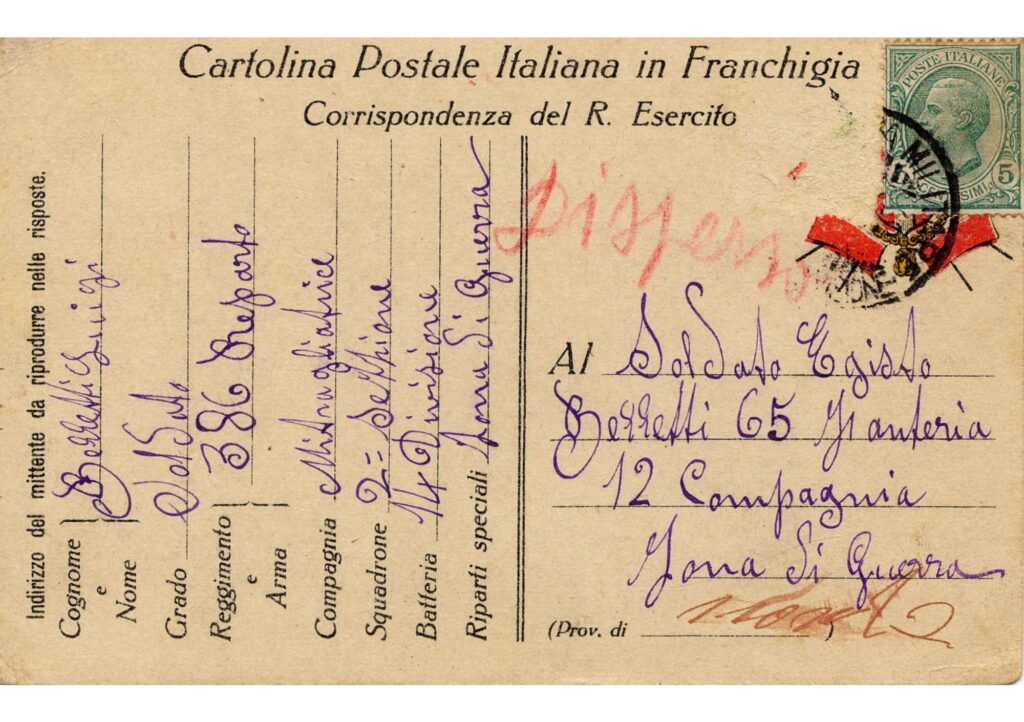 Cartolina Postale Italiana in Franchigia
Corrispondenza del R. Esercito
POSTE ITALIANE
5
Indirizzo del mittente da riprodurre nelle risposte.
Cognome e Nome Berretti Luigi
Grado Soldato
Reggimento e Arma 386 Reparto
Compagnia Mitragliatrice
Squadrone 2= Sethione
Batteria 14 Divisione
Riparti speciali Zona Di Guerra
Disperso
Al Soldato Egisto
Berretti 65 Fanteria
12 Compagnia
Zona Di Guerra
(Prov. di )